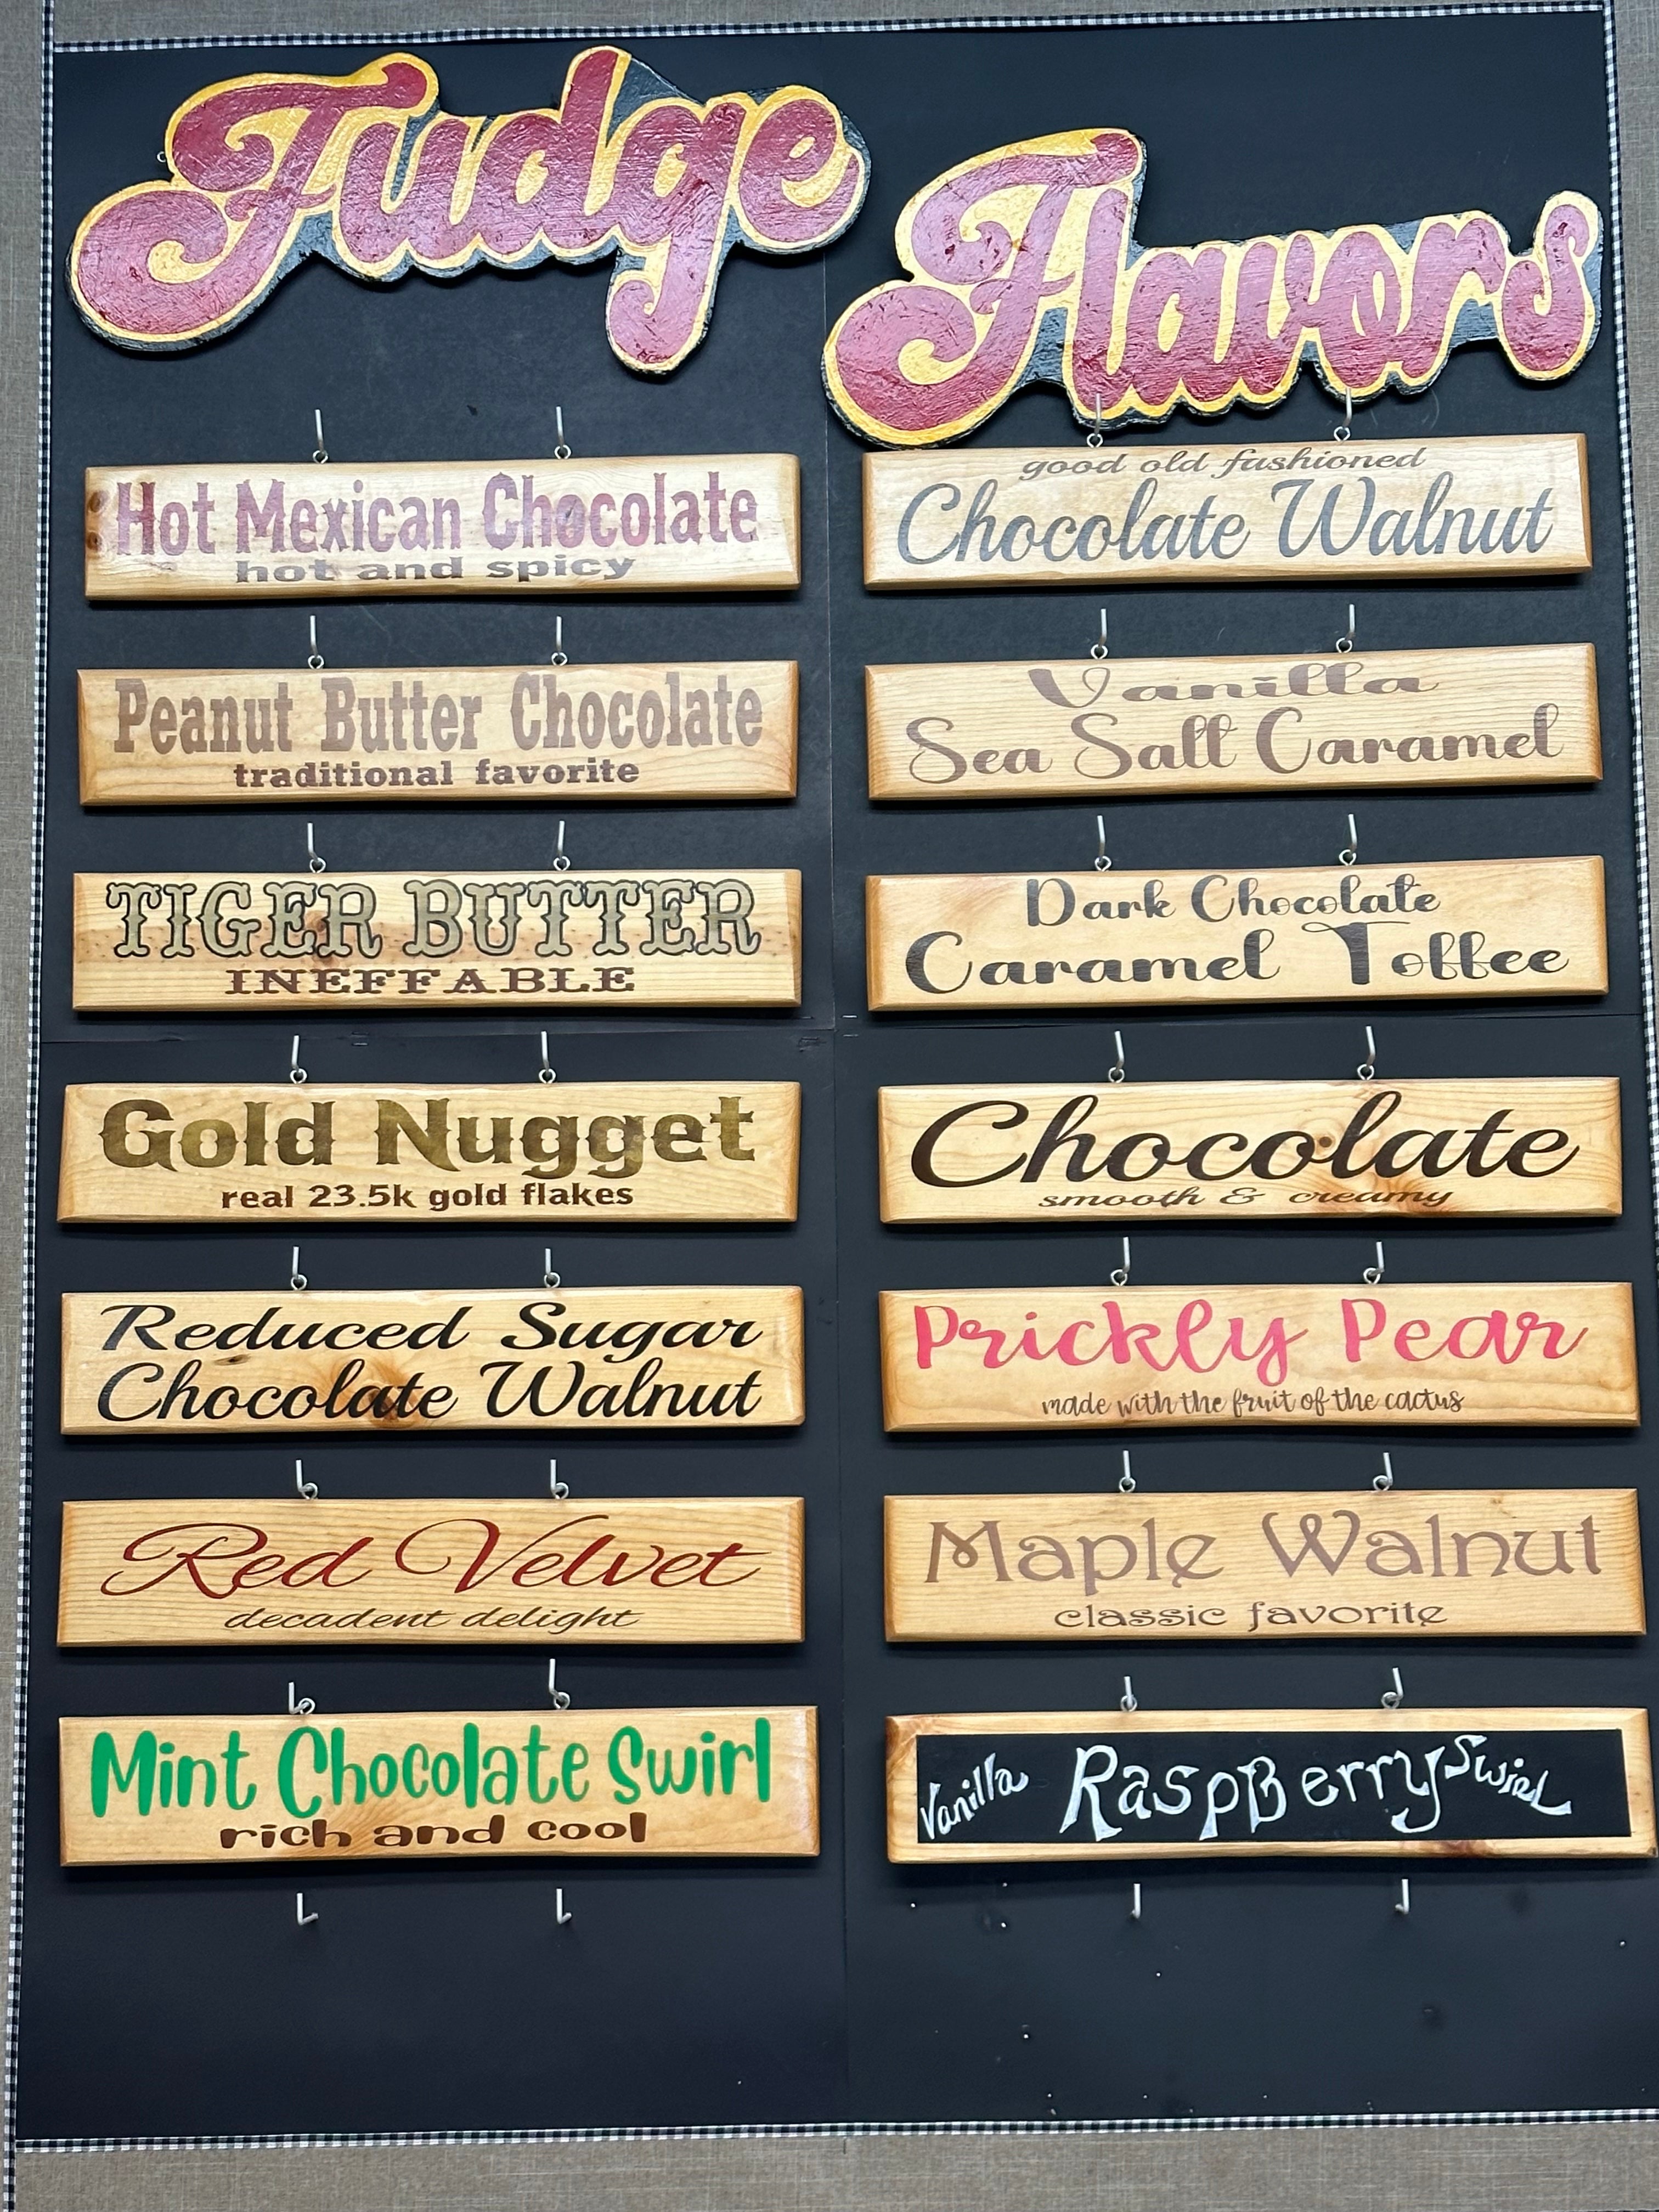 Fudge
Flavors
Hot Mexican Chocolate
hot and spicy
Peanut Butter Chocolate
traditional favorite
TIGER BUTTER
INEFFABLE
Gold Nugget
real 23.5k gold flakes
Reduced Sugar
Chocolate Walnut
Red Velvet
decadent delight
Mint Chocolate Swirl
rich and cool
good old fashioned
Chocolate Walnut
Vanilla
Sea Salt Caramel
Dark Chocolate
Caramel Toffee
Chocolate
smooth & creamy
Prickly Pear
made with the fruit of the cactus
Maple Walnut
classic favorite
Vanilla RaspBerry Swirl